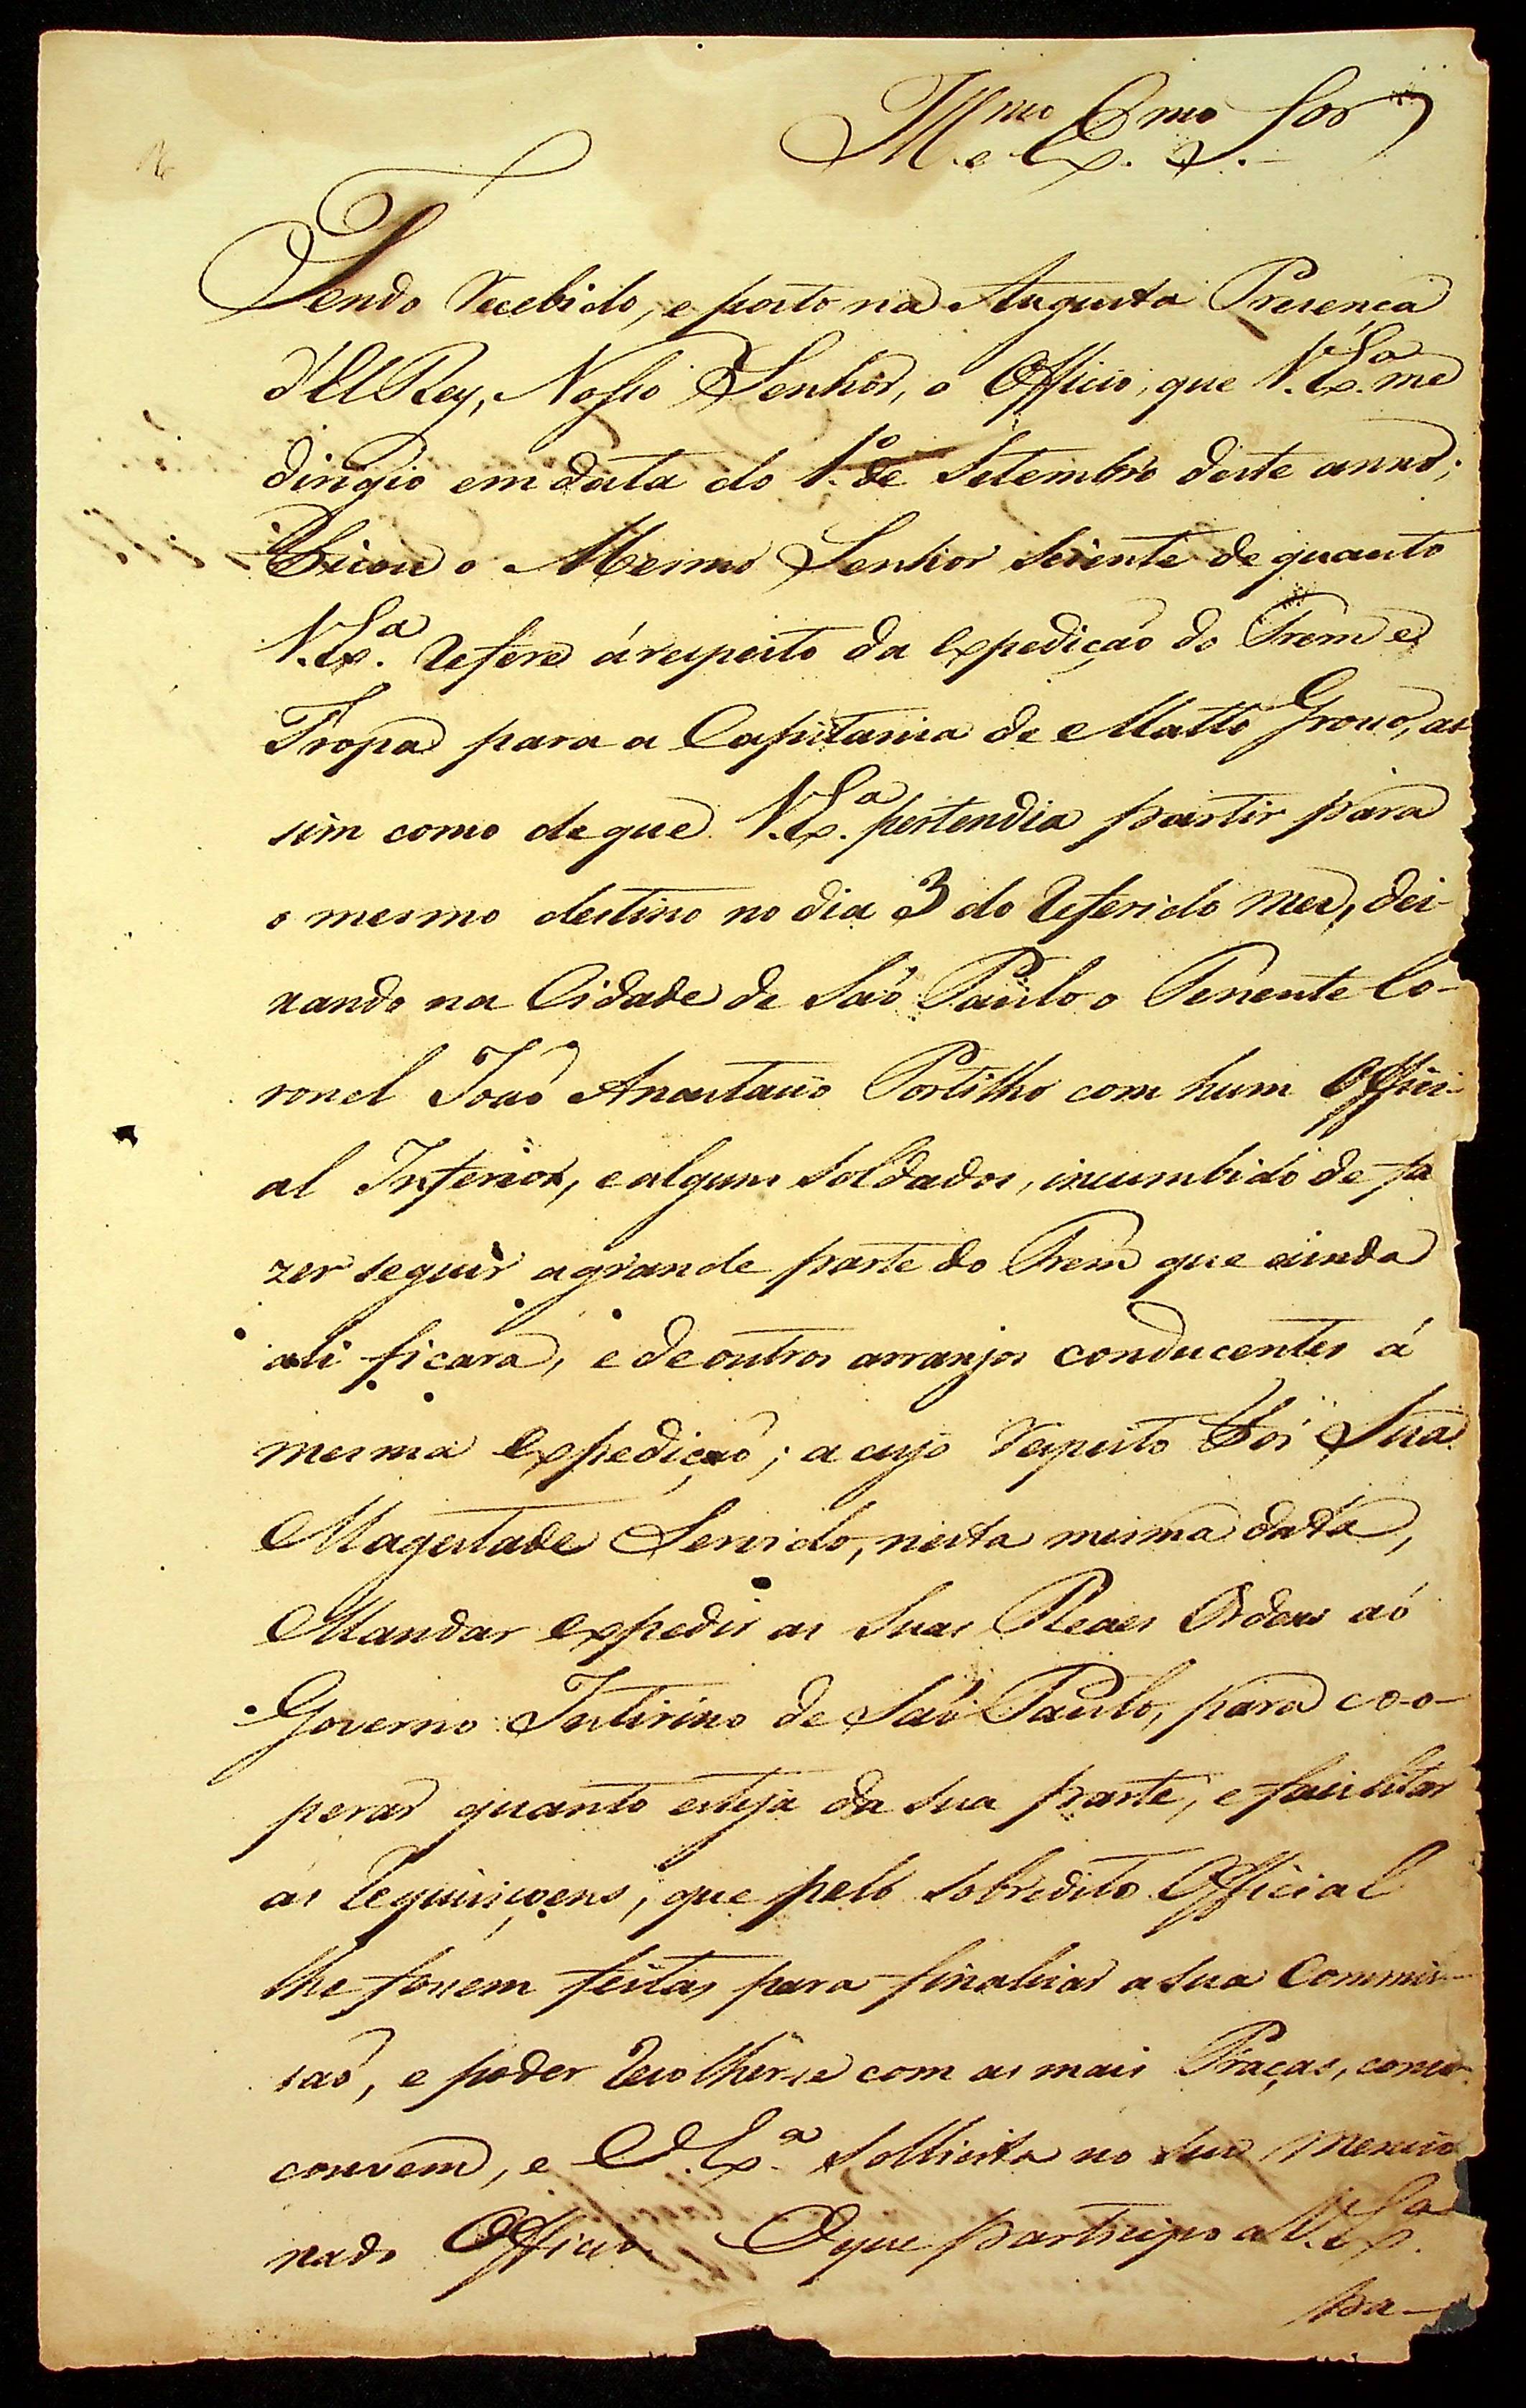 Ill.mo e Ex.mo Snr.
Sendo recebido, e posto na Augusta Presença
d'ElRey, Nosso Senhor, o Officio, que V. Ex.a me
dirigio em data do 1.o de Setembro deste anno;
Ficou o Mesmo Senhor sciente de quanto
V. Ex.a refere á respeito da expedição do Trem e
Tropa para a Capitania de Matto Grosso, as
sim como de que V. Ex.a pertendia partir para
o mesmo destino no dia 3 do referido mez, dei-
xando na Cidade de São Paulo o Tenente Co-
ronel João Anastacio Portilho com hum Offici-
al Inferior, e alguns soldados, incumbido de fa
zer seguir a grande parte do Trem que ainda
ali ficara, e de outros arranjos conducentes á
mesma expedição; a cujo respeito Foi Sua
Magestade Servido, nesta mesma data,
Mandar expedir as Suas Reaes Ordens aó
Governo Intirino de São Paulo, para co-o-
perar quanto esteja da sua parte, e facilitar
as requisiçoens, que pelo sobredito Official
lhe forem feitas para finalisar a sua Commis-
saõ, e poder recolher-se com as mais Praças, como
convem, e V. Ex.a sollicita no seu mencio
nado Officio. O que participo a V. Ex.a
pa-